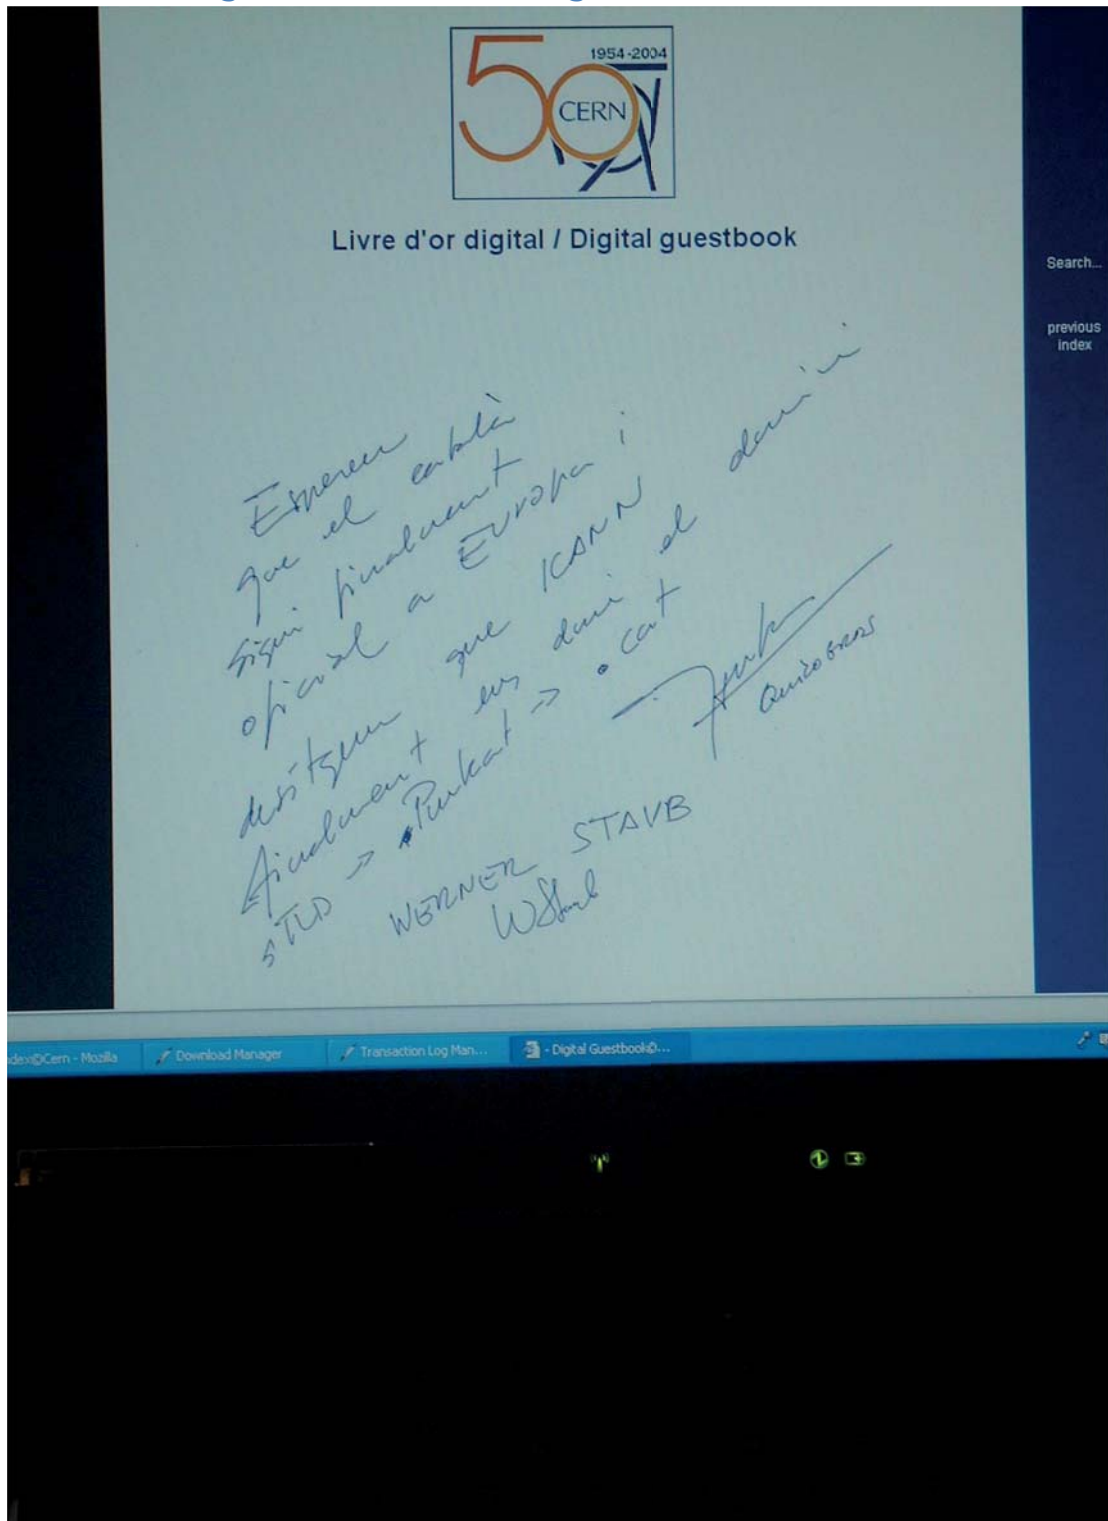 1954-2004
50
CERN
Livre d'or digital / Digital guestbook
Search...
previous
index
Esperem
que el català
sigui finalment
oficial a Europa i
desitgem que ICANN
finalment ens doni el domini
sTLD -> .cat
WERNER STAUB
WStaub
dex©Cern - Mozilla
Download Manager
Transaction Log Man...
- Digital Guestbook©...